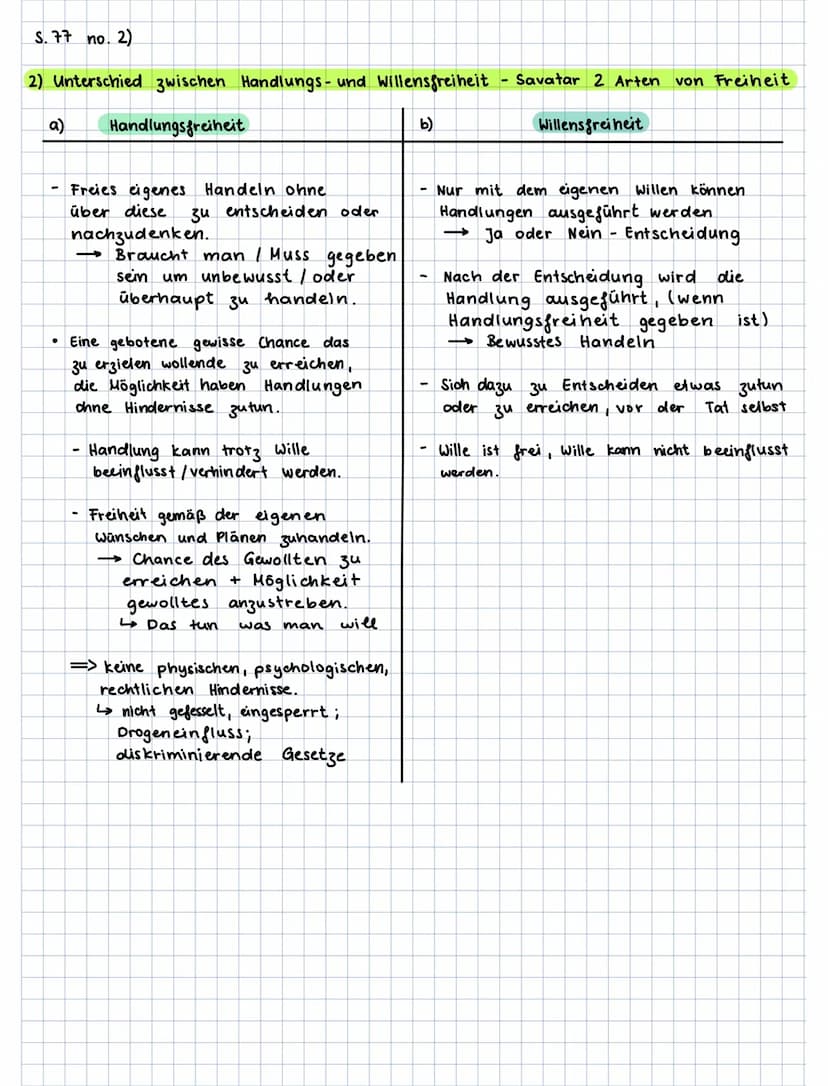 S. 77 no. 2)
2) Unterschied zwischen Handlungs- und Willensfreiheit - Savatar 2 Arten von Freiheit
a) Handlungsfreiheit
- Freies eigenes Handeln ohne
über diese zu entscheiden oder
nachzudenken.
→ Braucht man / Muss gegeben
sein um unbewusst / oder
überhaupt zu handeln.
• Eine gebotene gewisse Chance das
zu erzielen wollende zu erreichen,
die Möglichkeit haben Handlungen
ohne Hindernisse zutun.
- Handlung kann trotz Wille
beeinflusst / verhindert werden.
- Freiheit gemäß der eigenen
Wünschen und Plänen zuhandeln.
→ Chance des Gewollten zu
erreichen + Möglichkeit
gewolltes anzustreben.
↳ Das tun was man will
=> keine physischen, psychologischen,
rechtlichen Hindernisse.
↳ nicht gefesselt, eingesperrt;
Drogeneinfluss;
diskriminierende Gesetze
b) Willensfreiheit
- Nur mit dem eigenen Willen können
Handlungen ausgeführt werden
→ Ja oder Nein - Entscheidung
- Nach der Entscheidung wird die
Handlung ausgeführt, (wenn
Handlungsfreiheit gegeben ist)
→ Bewusstes Handeln
- Sich dazu zu Entscheiden etwas zutun
oder zu erreichen, vor der Tat selbst
- Wille ist frei, Wille kann nicht beeinflusst
werden.